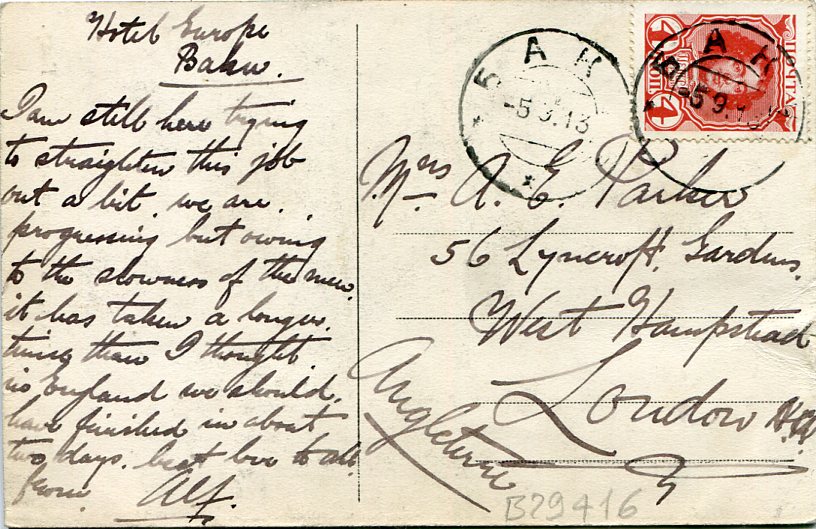 Hotel Europe
Baku.
I am still here trying
to straighten this job
out a bit, we are
progressing but owing
to the slowness of the men,
it has taken a longer
time than I thought
in England we should
have finished in about
two days. best love to all
from Alf.
БАК
-5 9.13
ПОЧТА
4
4
БАК
-5 9.13
Mrs A. E. Parker
56 Lyncroft Gardens.
West Hampstead
London N.W
Angleterre
B29416